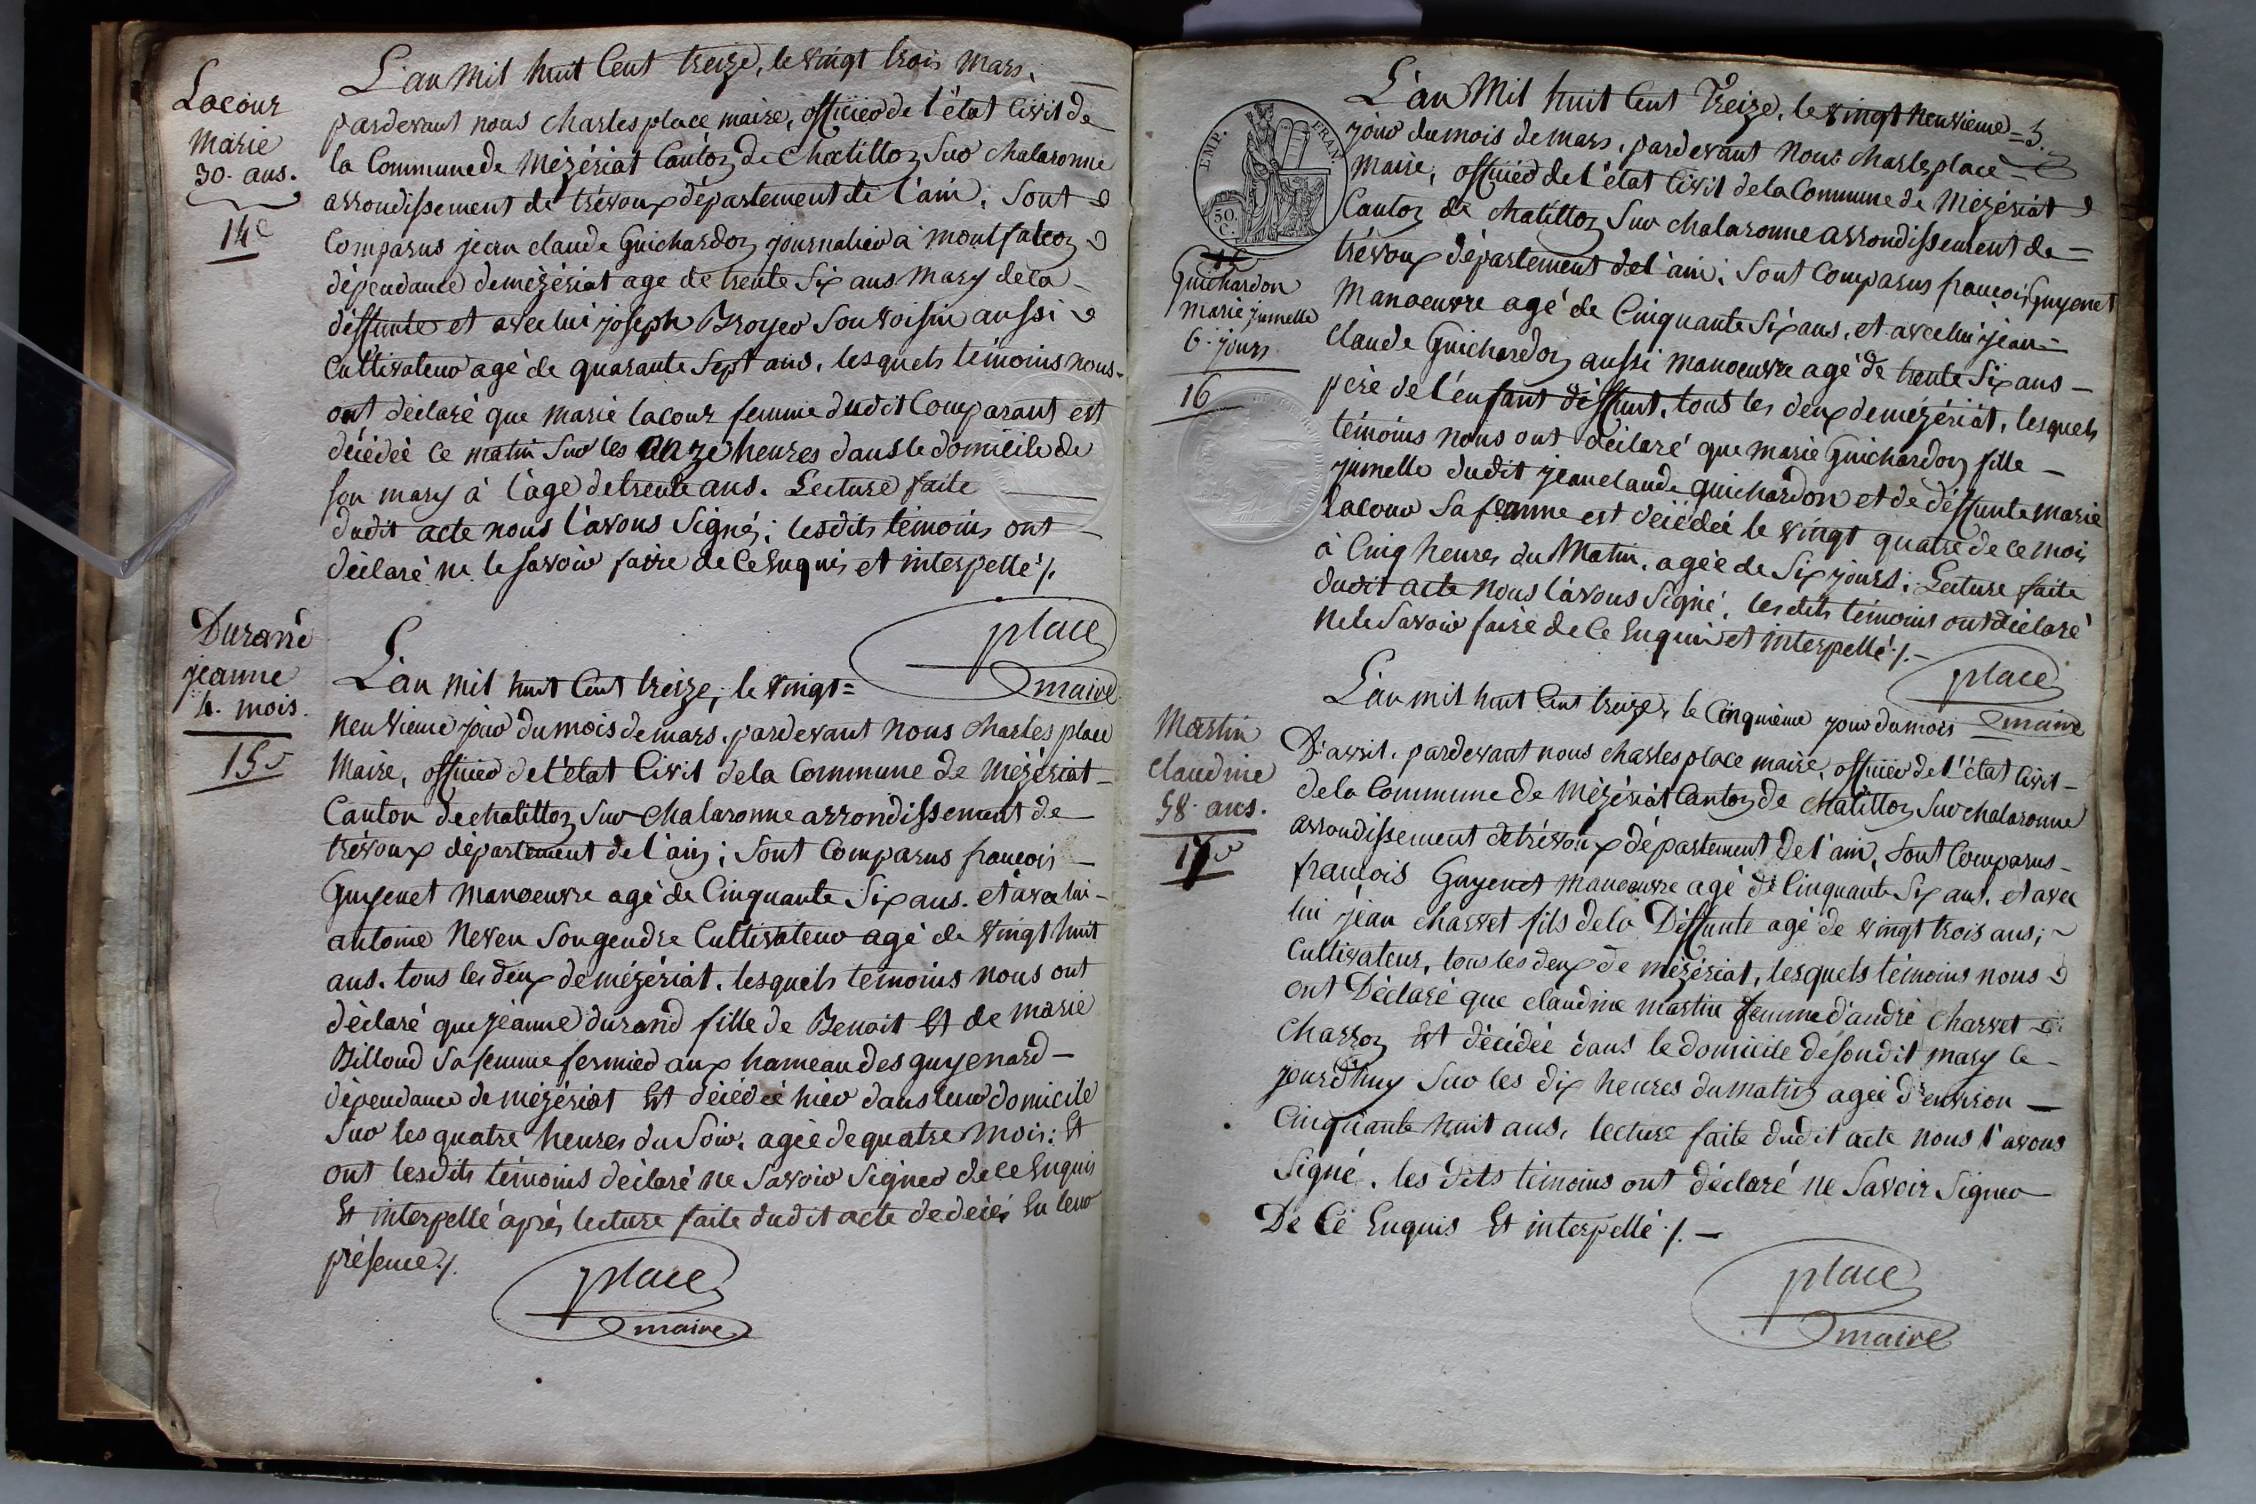 Lacour
Marie
30. ans.
14e
L'an Mil huit Cent treize, le vingt trois Mars,
pardevant nous charles place maire, officier de l'état Civil de
la Commune de Mézériat Canton de Chatillon Sur chalaronne
arrondissement de trévoux département de l'ain, Sont
Comparus jean claude Guichardon journalier à montfalcon
dépendance de mézériat agé de trente Six ans Mary de la
déffunte et avec lui joseph Broyer Son voisin aussi
Cultivateur agé de quarante Sept ans, lesquels témoins nous
ont déclaré que marie lacour femme dudit Comparant est
décédée ce matin Sur les onze heures dans le domicile de
son mary à l'age de trente ans. Lecture faite
dudit acte nous l'avons Signé; lesdits témoins ont
déclaré ne le savoir faire de Ce Enquis et interpellé ./.
place
maire
Durand
jeanne
4. mois.
15e
L'an mil huit Cent treize, le vingt=
neuvieme jour du mois de mars, pardevant nous Charles place
Maire, officier de l'état Civil de la Commune de Mézériat
Canton de chatillon Sur Chalaronne arrondissement de
trévoux département de l'ain; Sont Comparus francois
Guyenet Manoeuvre agé de Cinquante Six ans. et avec lui
antoine Neveu Son gendre Cultivateur agé de vingt huit
ans. tous les deux de mézériat. lesquels témoins nous ont
déclaré que jeanne durand fille de Benoit Et de marie
Billoud Sa femme fermier aux hameau des guyenard
dépendance de mézériat Est décédée hier dans leur domicile
Sur les quatre heures du Soir. agée de quatre Mois: Et
ont lesdits témoins déclaré ne Savoir Signer de ce Enquis
Et interpellé après lecture faite dudit acte de décés En leur
présence ./.
place
maire
EMP. FRAN.
50.
C.
Guichardon
marie jumelle
6. jours
16
L'an Mil huit Cent Treize, le vingt neuvieme = 3.
jour du mois de mars, pardevant Nous charles place
Maire, officier de l'état Civil de la Commune de Mézériat
Canton de chatillon Sur chalaronne arrondissement de
trévoux département de l'ain; Sont Comparus francois Guyenet
Manoeuvre agé de Cinquante Six ans, et avec lui jean
claude Guichardon aussi Manoeuvre agé de trente Six ans
pere de l'enfant déffunt, tous les deux de mézériat, lesquels
témoins nous ont déclaré que marie Guichardon fille
jumelle dudit jean claude guichardon et de déffunte marie
lacour Sa femme est décédée le vingt quatre de ce mois
à Cinq heures du Matin, agée de Six jours; Lecture faite
dudit acte Nous l'avons Signé. les dits témoins ont déclaré
Ne le Savoir faire de Ce Enquis et interpellé ./.
place
maire
Martin
claudine
58. ans.
17e
L'an mil huit Cent treize, le Cinquième jour du mois
D'avril, pardevant nous charles place maire, officier de l'état Civil
de la Commune de Mézériat Canton de Chatillon Sur chalaronne
arrondissement de trévoux département de l'ain, Sont Comparus
francois Guyenet manoeuvre agé de Cinquante Six ans, et avec
lui jean charvet fils de la Déffunte agé de vingt trois ans;
Cultivateur, tous les deux de mézériat, lesquels témoins nous
ont Déclaré que claudine martin femme d'andré Charvet
Charron Est décédée dans le domicile de sondit mary ce
jourd'huy Sur les dix heures du matin agée d'environ
Cinquante huit ans, lecture faite dudit acte nous l'avons
Signé, les dits témoins ont déclaré ne Savoir Signer
De Ce Enquis Et interpellé ./.
place
maire